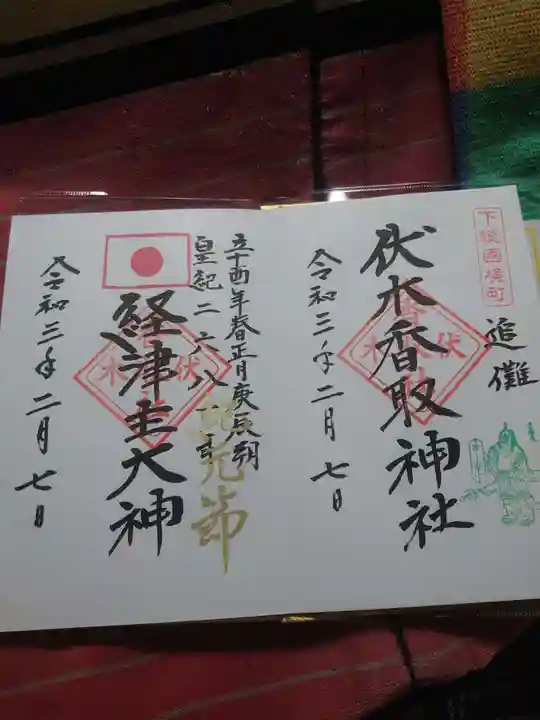 下総国境町
追儺
伏木香取神社
令和三年二月七日
辛酉年春正月庚辰朔
皇紀二六八一年
紀元節
経津主大神
令和三年二月七日